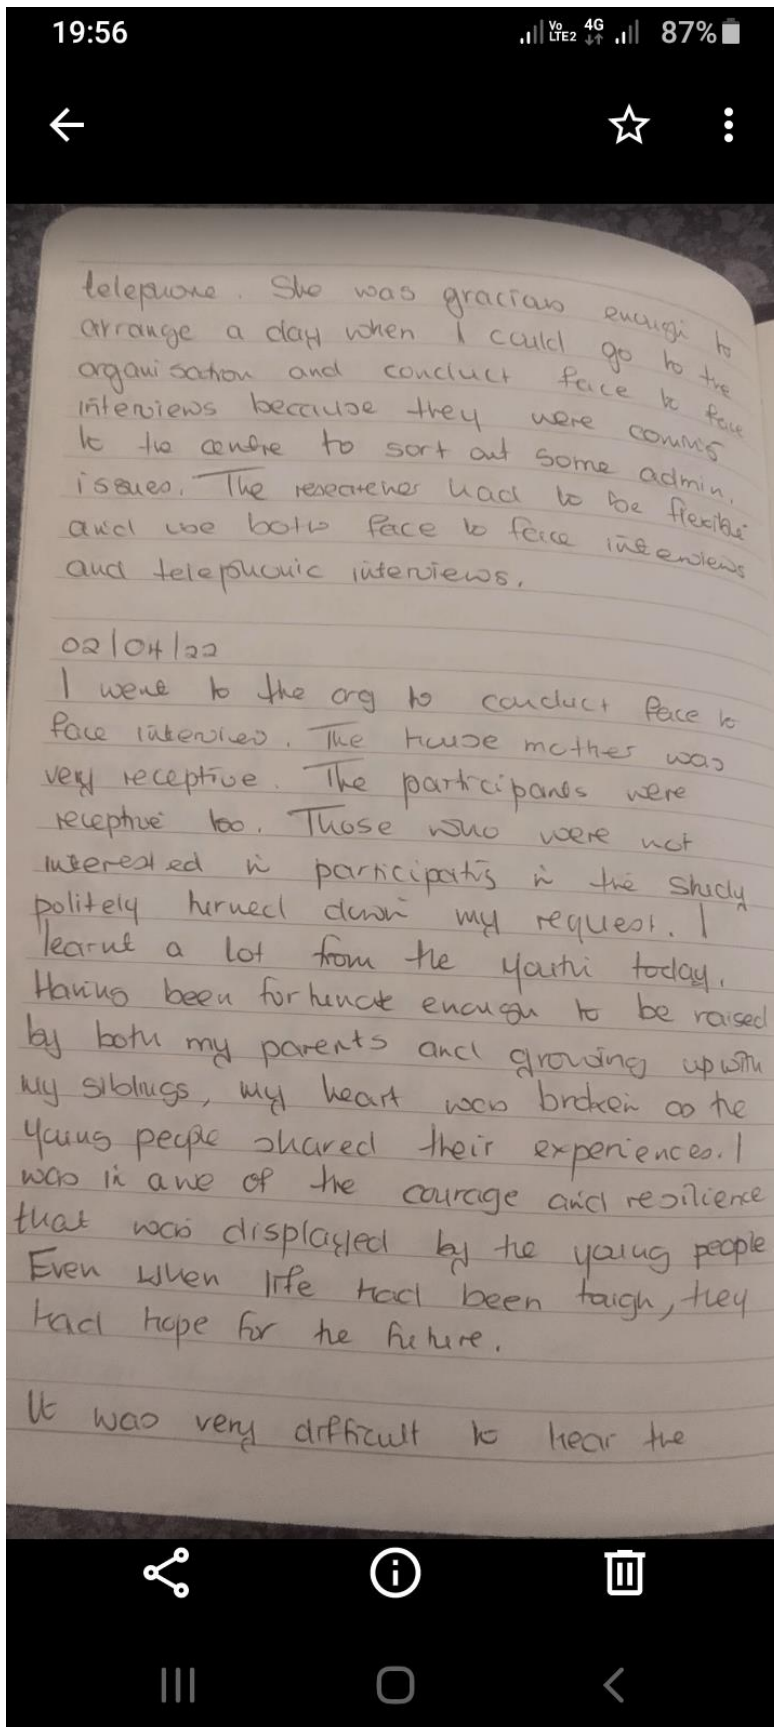 19:56
Vo LTE2 4G 87%
telephone. She was gracious enough to
arrange a day when I could go to the
organisation and conduct face to face
interviews because they were coming
to the centre to sort out some admin.
issues. The researcher had to be flexible
and use both face to face interviews
and telephonic interviews.
02/04/22
I went to the org to conduct face to
face interviews. The house mother was
very receptive. The participants were
receptive too. Those who were not
interested in participating in the study
politely turned down my request. I
learnt a lot from the youth today.
Having been fortunate enough to be raised
by both my parents and growing up with
my siblings, my heart was broken as the
young people shared their experiences. I
was in awe of the courage and resilience
that was displayed by the young people
Even when life had been tough, they
had hope for the future.
It was very difficult to hear the